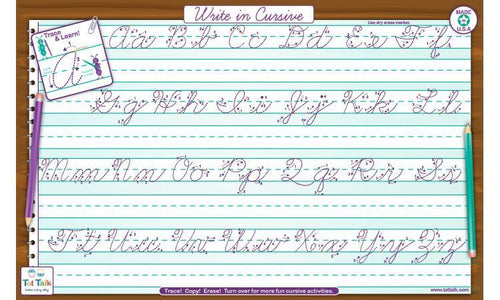 Write in Cursive
Use dry erase marker.
MADE IN U.S.A
Trace & Learn!
a
Aa Bb Cc Dd Ee Ff
Gg Hh Ii Jj Kk Ll
Mm Nn Oo Pp Qq Rr Ss
Tt Uu Vv Ww Xx Yy Zz
Tot Talk
Trace! Copy! Erase! Turn over for more fun cursive activities.
www.tottalk.com